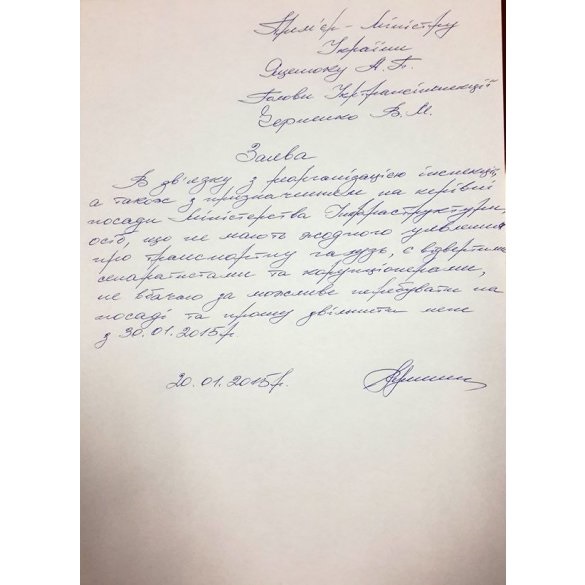 Прем'єр-Міністру
України
Яценюку А.П.
Голови Укртрансінспекції
Черненко В.М.
Заява
В зв'язку з реорганізацією інспекції,
а також з призначенням на керівні
посади Міністерства Інфраструктури,
осіб, що не мають жодного уявлення
про транспортну галузь, є відвертими
сепаратистами та корупціонерами,
не вбачаю за можливе перебувати на
посаді та прошу звільнити мене
з 30.01.2015р.
20.01.2015р.